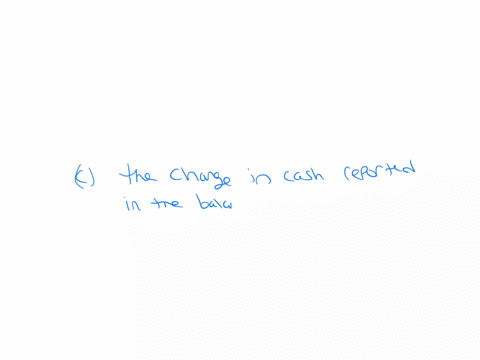 (c) the change in cash reported
in the bala